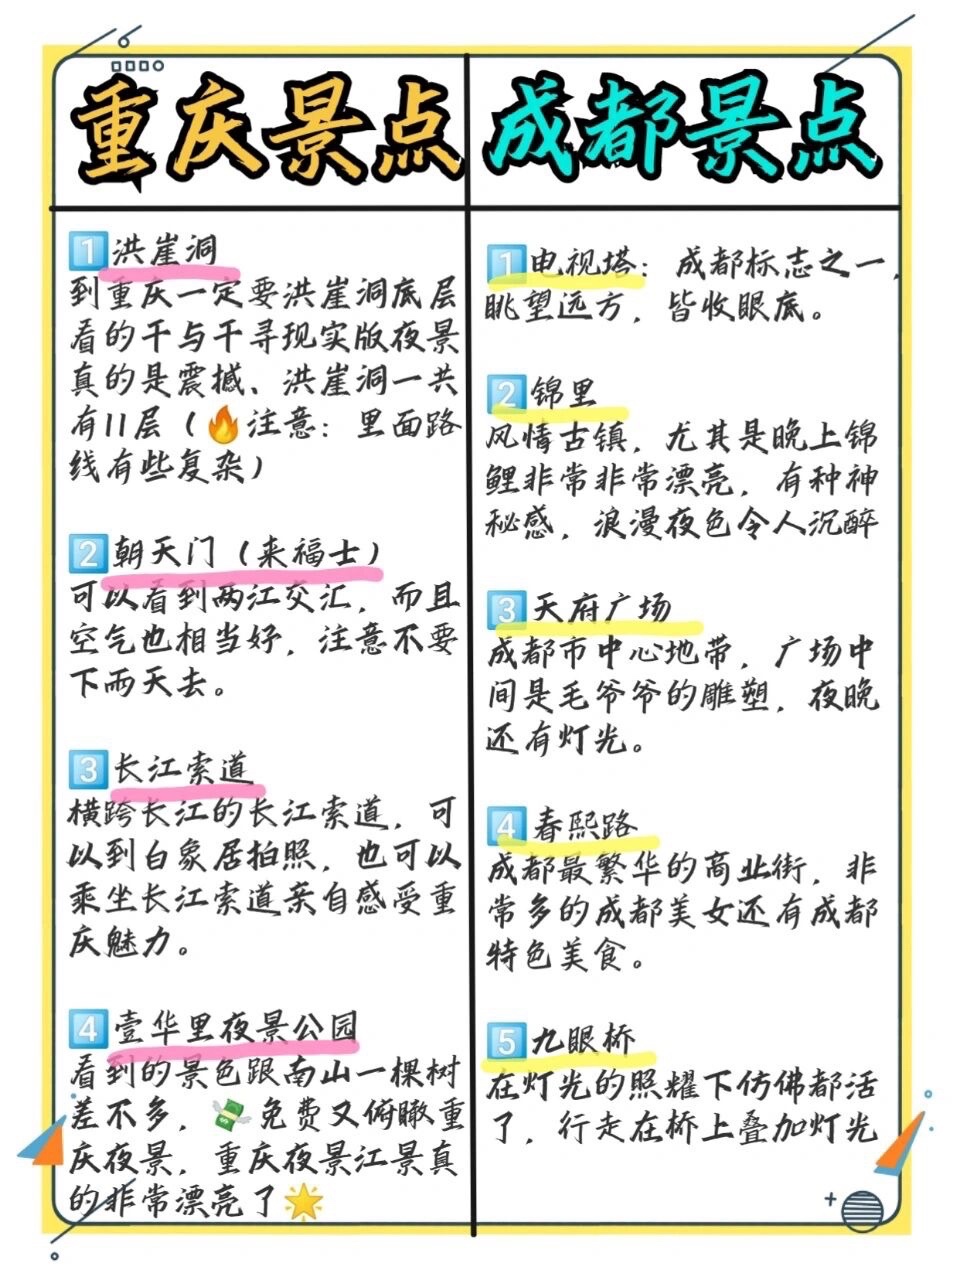 重庆景点
1 洪崖洞
到重庆一定要洪崖洞底层
看的千与千寻现实版夜景
真的是震撼、洪崖洞一共
有11层（🔥注意：里面路
线有些复杂）
2 朝天门（来福士）
可以看到两江交汇，而且
空气也相当好，注意不要
下雨天去。
3 长江索道
横跨长江的长江索道，可
以到白象居拍照，也可以
乘坐长江索道亲自感受重
庆魅力。
4 壹华里夜景公园
看到的景色跟南山一棵树
差不多，💸免费又俯瞰重
庆夜景，重庆夜景江景真
的非常漂亮了🌟
成都景点
1 电视塔：成都标志之一，
眺望远方，皆收眼底。
2 锦里
风情古镇，尤其是晚上锦
鲤非常非常漂亮，有种神
秘感，浪漫夜色令人沉醉
3 天府广场
成都市中心地带，广场中
间是毛爷爷的雕塑，夜晚
还有灯光。
4 春熙路
成都最繁华的商业街，非
常多的成都美女还有成都
特色美食。
5 九眼桥
在灯光的照耀下仿佛都活
了，行走在桥上叠加灯光